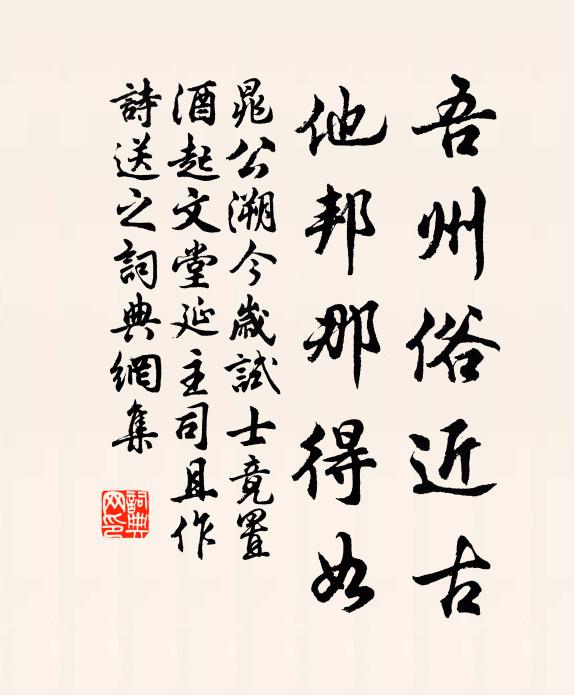 吾州俗近古
他邦那得如
晁公溯今歲試士竟置
酒起文堂延主司且作
詩送之詞典網集
詞典网印